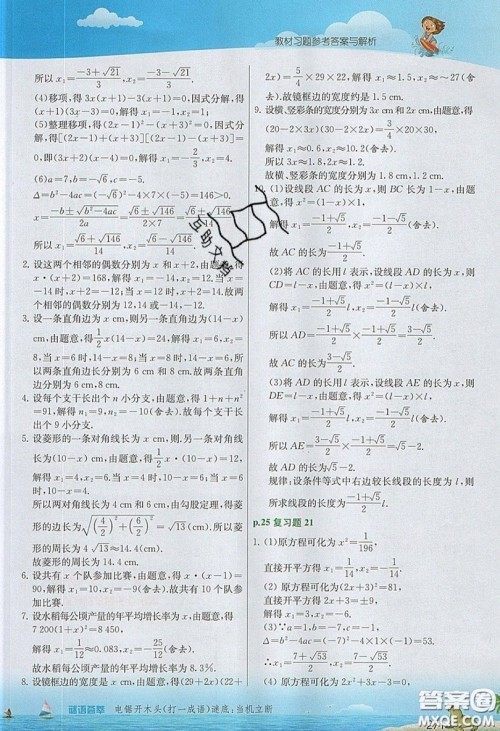 教材习题参考答案与解析
所以 x₁=(-3+√21)/3, x₂=(-3-√21)/3.
(4)移项,得 3x(x+1)-3(x+1)=0,因式分解,得 3(x+1)(x-1)=0,解得 x₁=-1,x₂=1;
(5)整理移项,得(2x-1)²-(x+3)²=0,因式分解,得[(2x-1)+(x+3)][(2x-1)-(x+3)]=0,解得 x₁=4,x₂=-2/3.
(6)a=7,b=-√6,c=-5,
Δ=b²-4ac=(-√6)²-4×7×(-5)=146>0.
x=(-b±√(b²-4ac))/2a=(√6±√146)/(2×7)=(√6±√146)/14.
所以 x₁=(√6+√146)/14, x₂=(√6-√146)/14.
2. 设这两个相邻的偶数分别为 x 和 x+2,由题意,得
x·(x+2)=168,解得 x₁=12,x₂=-14.当 x=
-14时,相邻的偶数分别为-14,-12.故这两个相邻的偶数分别为 12,14或-14,-12.
3. 设一条直角边为 x cm,则另一条直角边为(14-x)
cm,由题意,得 1/2 x(14-x)=24,解得 x₁=6,x₂=
8.当 x=6时,14-x=8;当 x=8时,14-x=6,所以
两条直角边长分别为 6 cm,8 cm.
4. 设每个支干长出 n 个小分支,由题意,得 1+n+n²
=91,解得 n₁=9,n₂=-10(舍去).故每个支干长出 9个小分支.
5. 设菱形的一条对角线长为 x cm,则另一条对角线长为(10-x)cm,由题意,得 1/2 x·(10-x)=12,解得
x₁=4,x₂=6.当 x=4时,10-x=6;当 x=6时,10-x
=4.
所以两对角线长为 4 cm 和 6 cm,由勾股定理,得菱
形的边长为√((4/2)²+(6/2)²)=√13(cm).所以菱
形的周长为 4√13≈14.4(cm).
故菱形周长约为 14.4 cm.
6. 设共有 x 个队参加比赛,由题意,得 x(x-1)=
90,解得 x₁=10,x₂=-9(舍去).故共有 10个队参加比赛.
7. 设水稻每公顷产量的年平均增长率为 x,由题意,得
7 200(1+x)²=8 450.
解得 x₁=1/12≈0.083,x₂=-25/12(舍去).
故水稻每公顷产量的年平均增长率约为 8.3%.
8. 设镜框边的宽度是 x cm,由题意,得(29+2x)(22+
2x)=5/4×29×22,解得 x₁≈1.5,x₂≈-27.0(舍
去).故镜框边的宽度约是 1.5 cm.
9. 设横、竖彩条的宽度分别为 3x cm 和 2x cm,由题意,得
(20-2×3x)(30-2×2x)=3/4×20×30,
解得 x₁≈0.6,x₂≈10.2(舍去).
所以 3x≈1.8,2x≈1.2.
故横、竖彩条的宽度分别约为 1.8 cm,1.2 cm.
10. (1)设线段 AC 的长为 x,则 BC 长为 1-x,由题意,得 x²=1-x.
解得 x₁=(-1+√5)/2, x₂=(-1-√5)/2(舍去).
故 AC 的长为(-1+√5)/2.
(2)将 AC 的长用 l 表示,设线段 AD 的长为 x,则
CD=l-x,由题意,得 x²=l(l-x).
解得 x₁=(-1+√5)/2 l, x₂=(-1-√5)/2 l(舍去).
所以 AD=(-1+√5)/2×(-1+√5)/2=(3-√5)/2.
故 AC 的长为(3-√5)/2.
(3)将 AD 的长用 l 表示,设线段 AE 的长为 x,则
DE=l-x,由题意,得 x²=l(l-x).
解得 x₁=(-1+√5)/2 l, x₂=(-1-√5)/2 l(舍去).
所以 AE=(3-√5)/2×(-1+√5)/2=-2+√5.
故 AD 的长为√5-2.
规律:设条件等式中右边较长线段的长为 l,则
所求线段的长为(-1+√5)/2 l.
p.25 复习题 21
1. (1)原方程可化为 x²=1/196,
直接开平方得 x₁=1/14,x₂=-1/14.
(2)原方程可化为(2x+3)²=81,
直接开平方得 2x+3=±9,解得 x₁=3,x₂=-6.
(3)∵a=1,b=-7,c=-1,
Δ=b²-4ac=(-7)²-4×1×(-1)=53>0.
谜语荟萃 电锯开木头(打一成语)谜底:当机立断
互助文库
答案圈
MXQE.COM